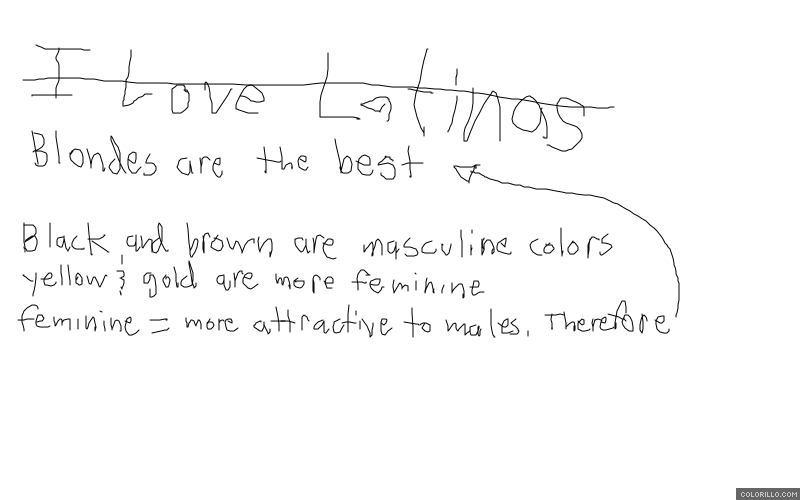 I Love Latinas
Blondes are the best
Black and brown are masculine colors
yellow & gold are more feminine
feminine = more attractive to males. Therefore
COLORILLO.COM